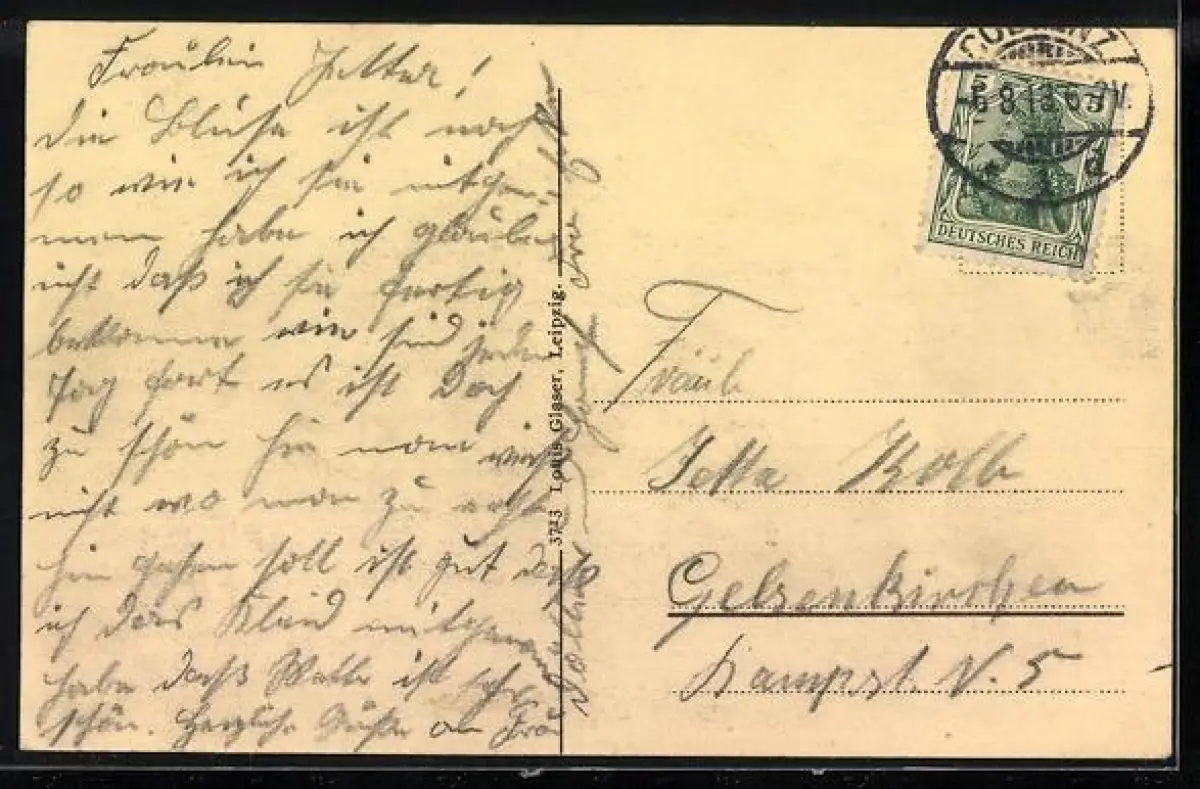 Fräulein Jetta!
die Blüse ist noch
so wie ich sie mitgenom-
men habe ich glaube
nicht daß ich sie fertig
bekomme wir sind jeden
Tag fort es ist doch
zu schön hier man weiß
nicht wo man zu erst
hin gehen soll ist gut daß
ich das Kleid mitgenommen
habe daß Wetter ist sehr
schön. Herzliche Grüße an Frau
Kolb
3723 Louis Glaser, Leipzig.
COBLENZ
5.8.13.6-7V.
d
DEUTSCHES REICH
5
Fräul.
Jetta Kolb
Gelsenkirchen
Kampst. N. 5